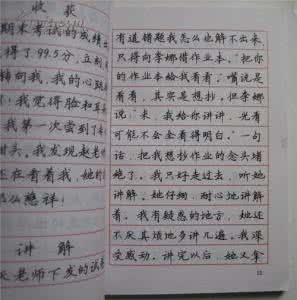 收获
期末考试的成绩出
得了99.5分,立刻
转向我,我的心跳
!我觉得脸和耳
我第一次尝到了
甘头。我发现赵老
还在看着我,她的
怎么慈祥!
讲解
老师下发的试
有道错题我怎么也解不出来,
只得向李娜借作业本:“把你
的作业本给我看看。”嘴说是
看看,其实是想抄。但李娜
说:“来,我给你讲讲,光看
可能不会全看得明白。”一句
话,把我想抄作业的念头堵
绝了。我只好走过去,听她
讲解。她仔细、耐心地讲解
着。我有疑惑的地方,她还
不厌其烦地多讲几遍。我深
受感动。讲完以后,她又拿